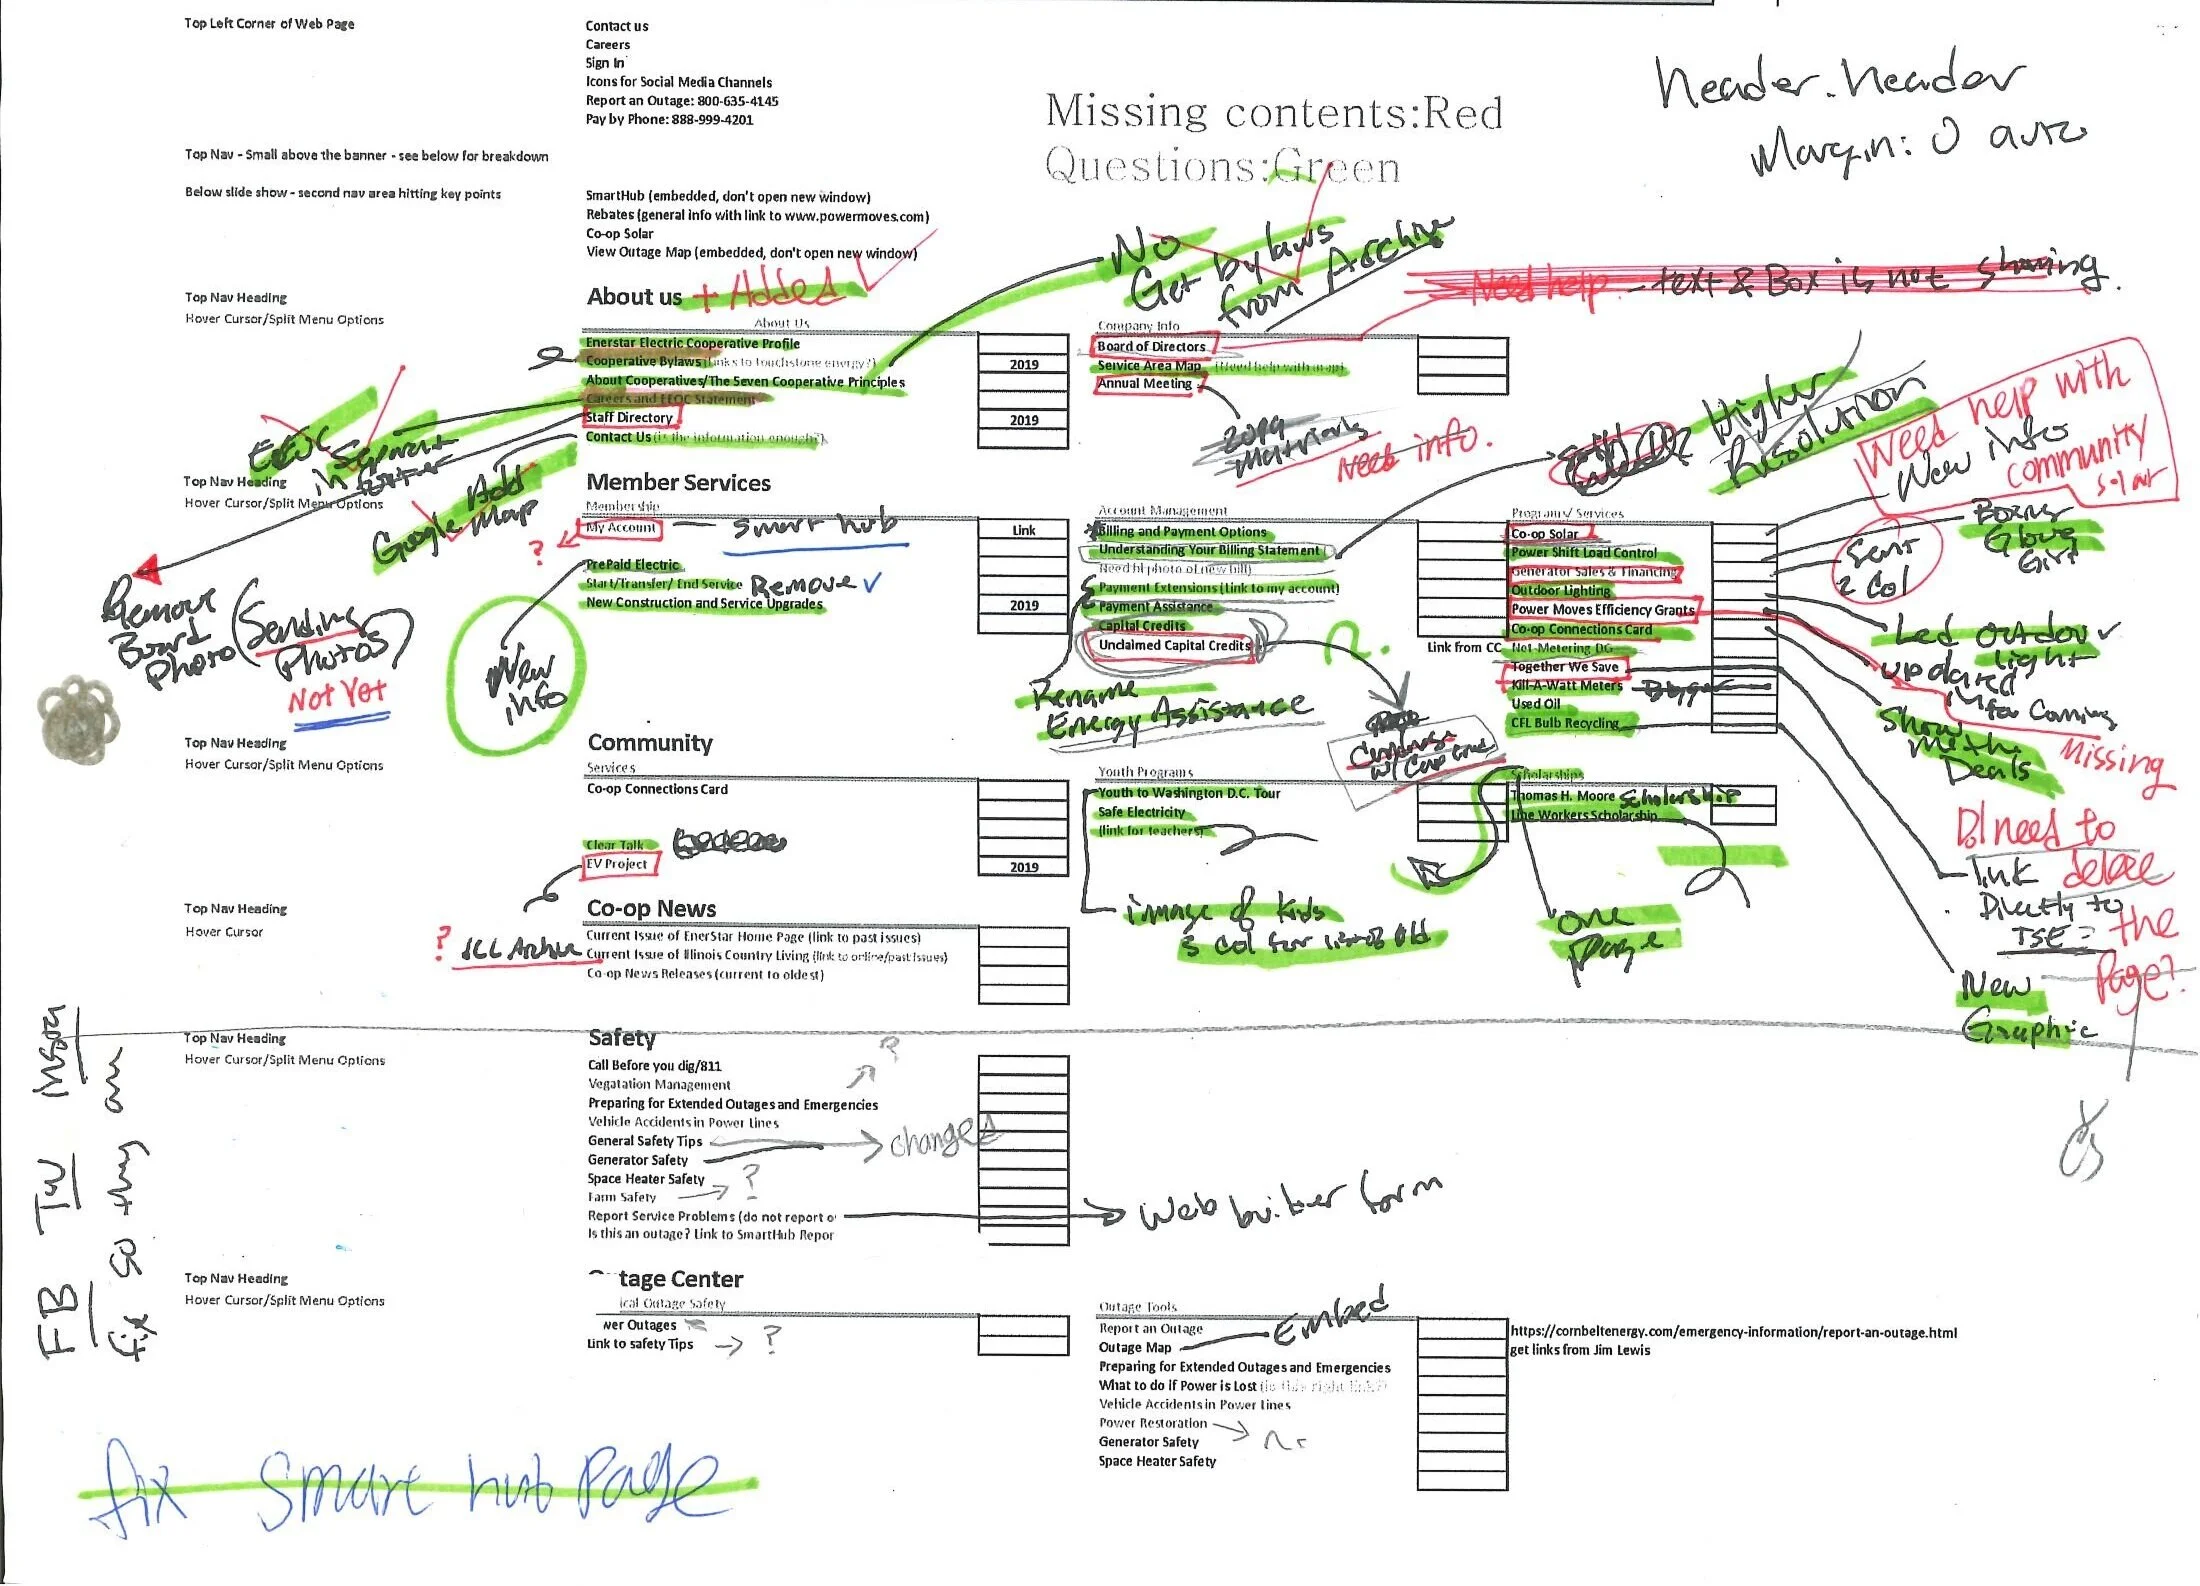 Top Left Corner of Web Page
Contact us
Careers
Sign In
Icons for Social Media Channels
Report an Outage: 800-635-4145
Pay by Phone: 888-999-4201
header.header
Margin: 0 auto
Missing contents:Red
Questions:Green
Top Nav - Small above the banner - see below for breakdown
Below slide show - second nav area hitting key points
SmartHub (embedded, don't open new window)
Rebates (general info with link to www.powermoves.com)
Co-op Solar
View Outage Map (embedded, don't open new window)
No
Get bylaws
from Archive
Need help - text & Box is not sharing.
Top Nav Heading
Hover Cursor/Split Menu Options
About us + Added
About Us
Enerstar Electric Cooperative Profile
Cooperative Bylaws (links to touchstone energy?)
2019
About Cooperatives/The Seven Cooperative Principles
Careers and EEOC Statement
Staff Directory
2019
Contact Us (is the information enough?)
Company Info
Board of Directors
Service Area Map (Need help with map)
Annual Meeting
2019
Materials
Need info.
Higher
Resolution
Need help with
community
solar
New info
EEOC
in Separate
Add
Google Map
Remove
Board
Photo
(Sending
Photos)
Not Yet
Top Nav Heading
Hover Cursor/Split Menu Options
Member Services
Membership
My Account
Smart hub
?
Link
PrePaid Electric
Start/Transfer/ End Service
Remove
New Construction and Service Upgrades
2019
New
info
Account Management
Billing and Payment Options
Understanding Your Billing Statement
(Need hi photo of new bill)
Payment Extensions (Link to my account)
Payment Assistance
Capital Credits
Unclaimed Capital Credits
Link from CC
Rename
Energy Assistance
Combine
w/ Cap Cred
Program/ Services
Co-op Solar
Power Shift Load Control
Generator Sales & Financing
Outdoor Lighting
Power Moves Efficiency Grants
Co-op Connections Card
Net-Metering DG
Together We Save
Kill-A-Watt Meters
Used Oil
CFL Bulb Recycling
Boxing
Glove
Girl
Sent
2 Col
Led Outdoor
light
updated
info Coming
Missing
Show
Me the
Deals
Do I need to
delete
the
Page?
Link
Directly to
TSE
New
Graphic
Top Nav Heading
Hover Cursor/Split Menu Options
Community
Services
Co-op Connections Card
Clear Talk
EV Project
2019
Youth Programs
Youth to Washington D.C. Tour
Safe Electricity
(link for teachers)
Scholarships
Thomas H. Moore Scholarship
Line Workers Scholarship
image of Kids
one
Page
Top Nav Heading
Hover Cursor
Co-op News
Current Issue of EnerStar Home Page (link to past issues)
?
Current Issue of Illinois Country Living (link to online/past Issues)
Co-op News Releases (current to oldest)
Top Nav Heading
Hover Cursor/Split Menu Options
Safety
?
Call Before you dig/811
Vegatation Management
Preparing for Extended Outages and Emergencies
Vehicle Accidents in Power Lines
General Safety Tips
changed
Generator Safety
Space Heater Safety
?
Farm Safety
Report Service Problems (do not report o
Web builder form
Is this an outage? Link to SmartHub Repor
FB TW Insta
fix so they are
Top Nav Heading
Hover Cursor/Split Menu Options
tage Center
ical Outage Safety
wer Outages
Link to safety Tips
?
Outage Tools
Embed
Report an Outage
https://cornbeltenergy.com/emergency-information/report-an-outage.html
Outage Map
get links from Jim Lewis
Preparing for Extended Outages and Emergencies
What to do if Power is Lost (is this right link?)
Vehicle Accidents in Power Lines
Power Restoration
Generator Safety
Space Heater Safety
fix Smart hub Page